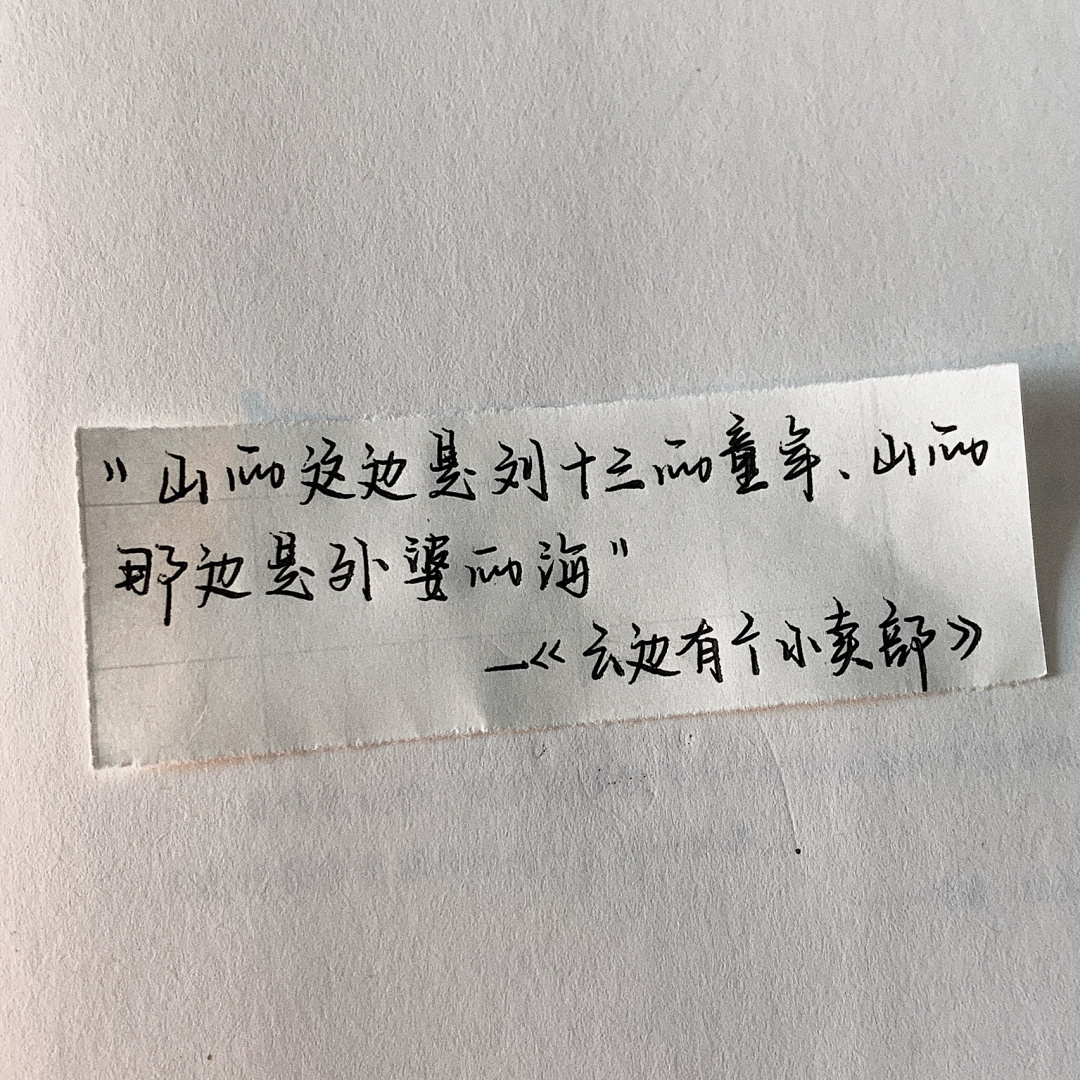 "山的这边是刘十三的童年、山的
那边是外婆的海"
—《云边有个小卖部》